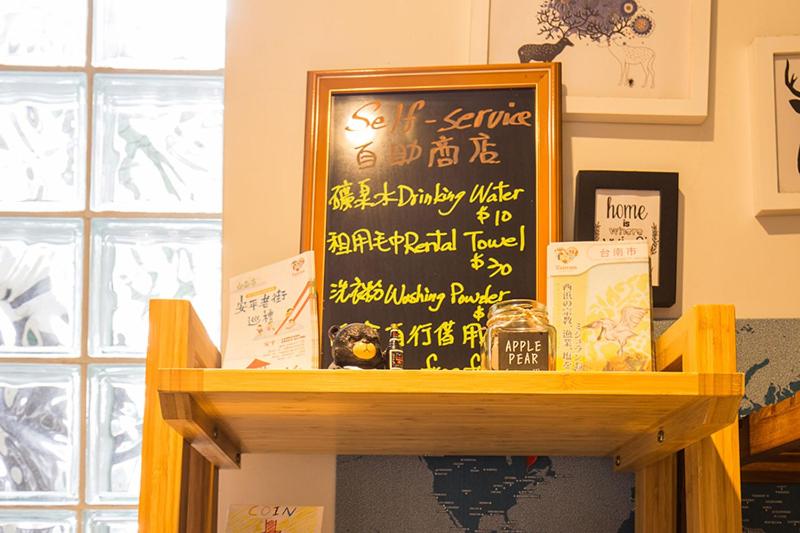 Self-service
自助商店
礦泉水Drinking Water
$10
租用毛巾Rental Towel
$30
洗衣粉Washing Powder
$
自行借用
安平老街
巡禮
APPLE
PEAR
台南市
西浜の宗教、漁業、塩を
home
is
COIN